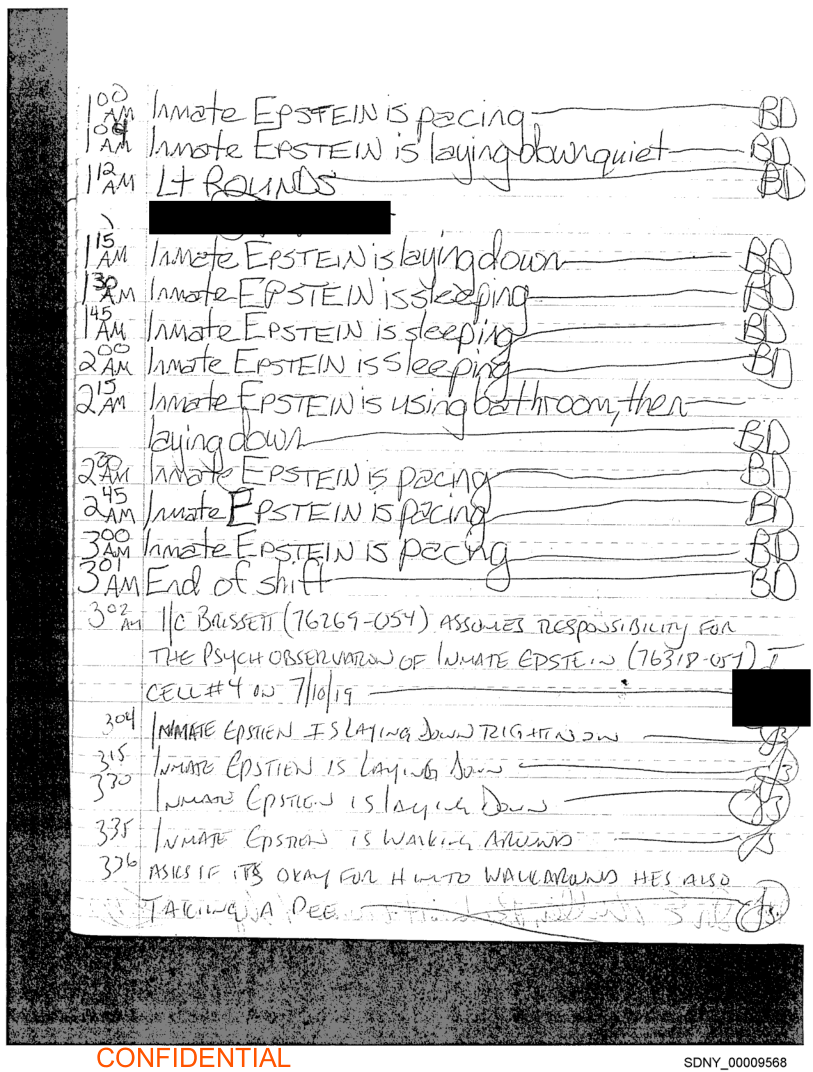 1 00 AM Inmate EPSTEIN is pacing BD
1 04 AM Inmate EPSTEIN is laying down quiet BD
1 12 AM Lt ROUNDS BD
1 15 AM Inmate EPSTEIN is laying down BD
1 30 AM Inmate EPSTEIN is sleeping BD
1 45 AM Inmate EPSTEIN is sleeping BD
2 00 AM Inmate EPSTEIN is sleeping BD
2 15 AM Inmate EPSTEIN is using bathroom, then
laying down BD
2 30 AM Inmate EPSTEIN is pacing BD
2 45 AM Inmate EPSTEIN is pacing BD
3 00 AM Inmate EPSTEIN is pacing BD
3 01 AM End of shift BD
3 02 AM I/C BRISSETT (76269-054) ASSUMES RESPONSIBILITY FOR
THE PSYCH OBSERVATION OF INMATE EPSTEIN (76318-054) I
CELL #4 ON 7/10/19
304 INMATE EPSTIEN IS LAYING DOWN RIGHT NOW JB
315 INMATE EPSTIEN IS LAYING DOWN JB
330 INMATE EPSTIEN IS laying DOWN JB
335 INMATE EPSTIEN IS WALKING AROUND JB
336 ASKS IF ITS OKAY FOR HIM TO WALK AROUND HES ALSO
TAKING A PEE JB
CONFIDENTIAL
SDNY_00009568